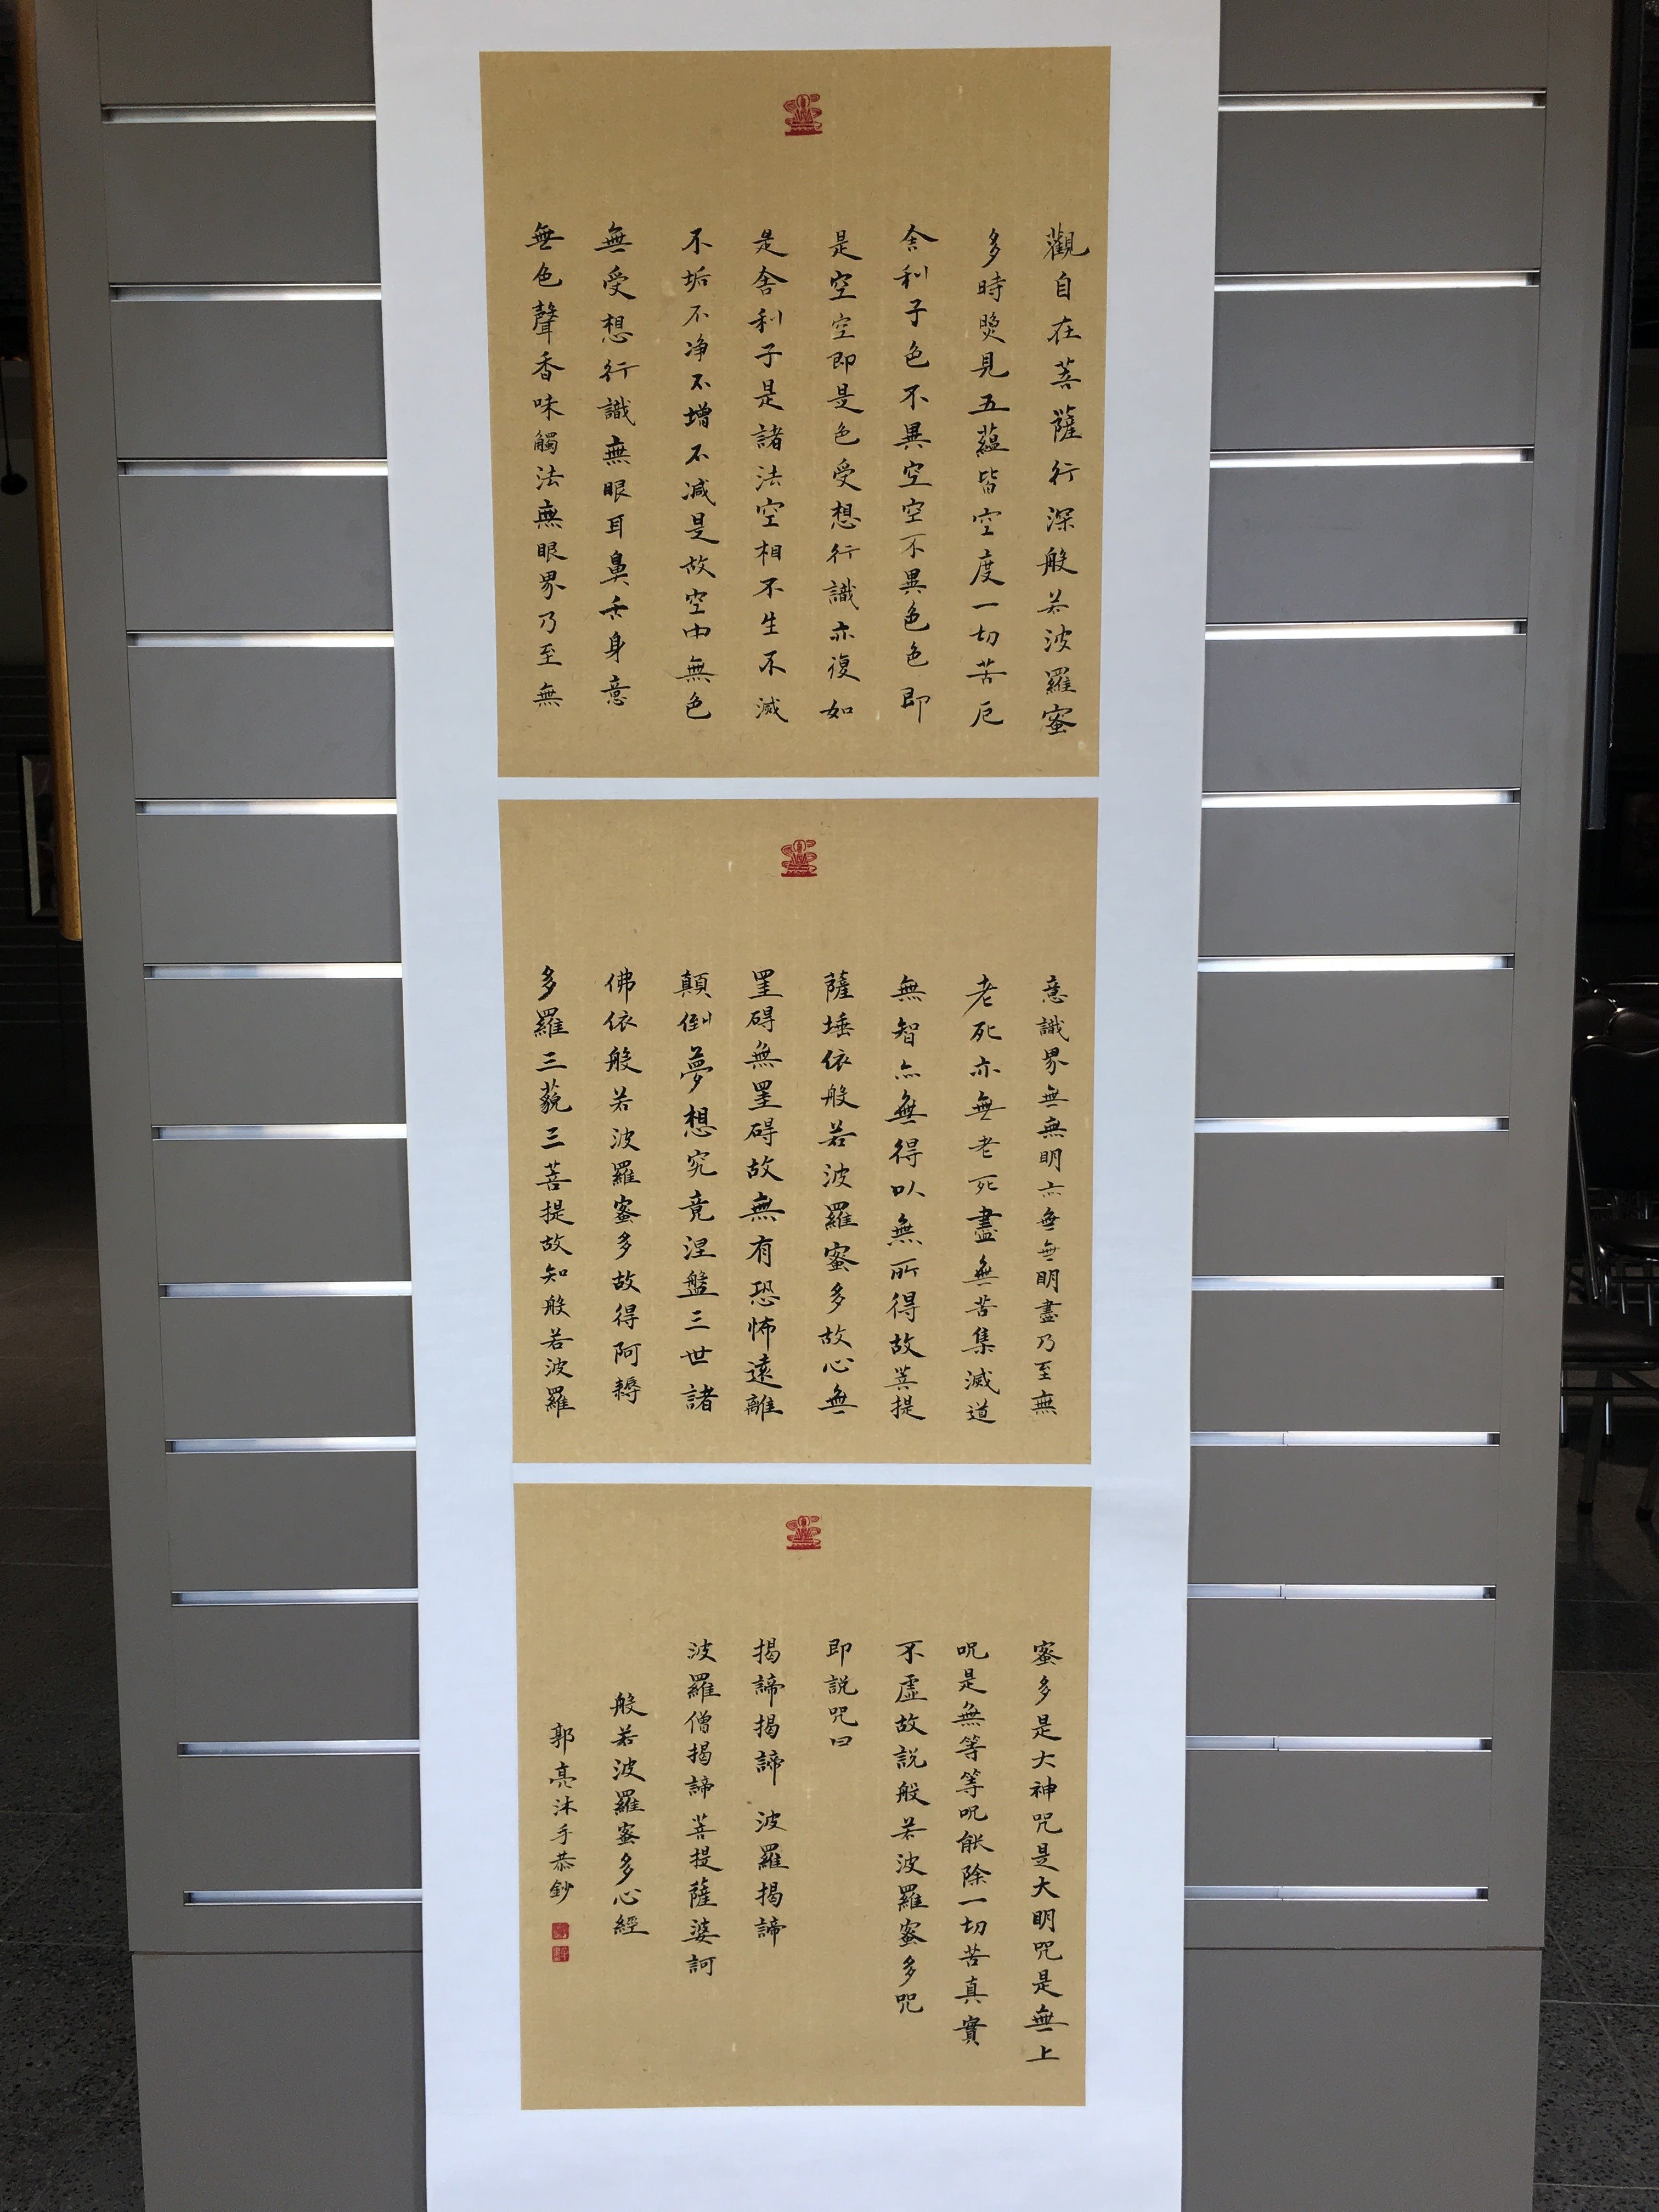 觀自在菩薩行深般若波羅蜜
多時煚見五蘊皆空度一切苦厄
舍利子色不異空空不異色色即
是空空即是色受想行識亦復如
是舍利子是諸法空相不生不滅
不垢不净不增不減是故空中無色
無受想行識無眼耳鼻舌身意
無色聲香味觸法無眼界乃至無
意識界無無明亦無無明盡乃至無
老死亦無老死盡無苦集滅道
無智亦無得以無所得故菩提
薩埵依般若波羅蜜多故心無
罣碍無罣碍故無有恐怖遠離
顛倒夢想究竟涅盤三世諸
佛依般若波羅蜜多故得阿耨
多羅三藐三菩提故知般若波羅
蜜多是大神咒是大明咒是無上
呪是無等等呪能除一切苦真實
不虛故説般若波羅蜜多咒
即説咒曰
揭諦揭諦 波羅揭諦
波羅僧揭諦菩提薩婆訶
般若波羅蜜多心經
郭亮沐手恭鈔